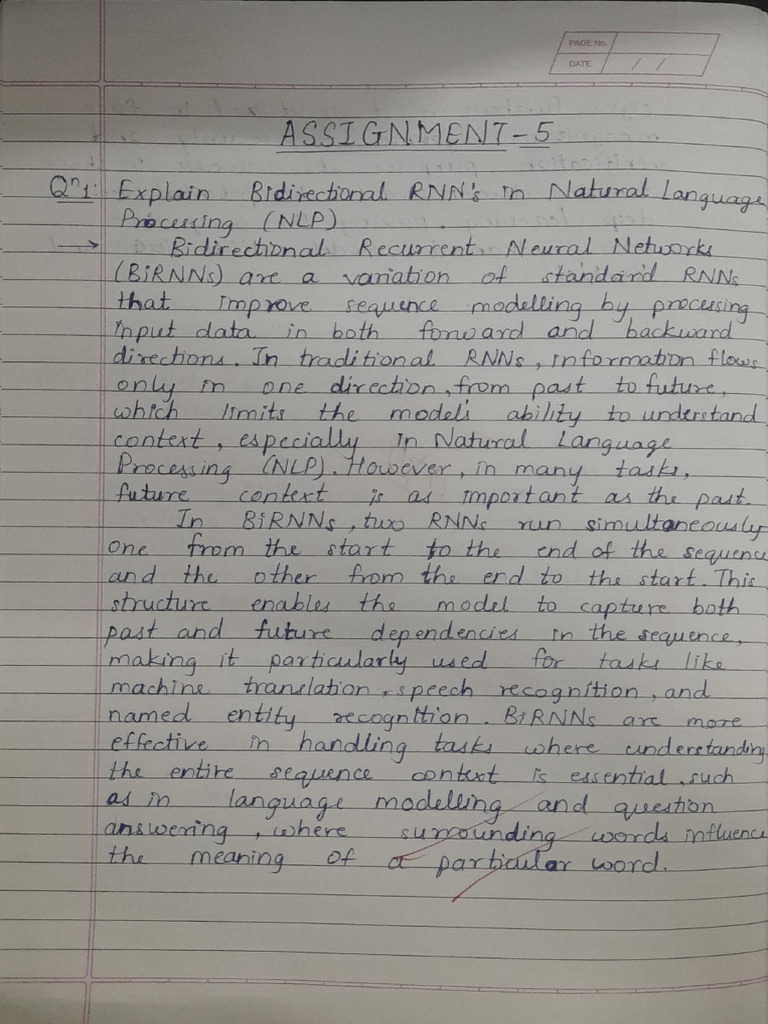 PAGE No.
DATE / /
ASSIGNMENT-5
Qn1: Explain Bidirectional RNN's in Natural Language
Processing (NLP).
→ Bidirectional Recurrent Neural Networks
(BiRNNs) are a variation of standard RNNs
that improve sequence modelling by processing
input data in both forward and backward
directions. In traditional RNNs, information flows
only in one direction, from past to future,
which limits the model's ability to understand
context, especially in Natural Language
Processing (NLP). However, in many tasks,
future context is as important as the past.
In BiRNNs, two RNNs run simultaneously
one from the start to the end of the sequence
and the other from the end to the start. This
structure enables the model to capture both
past and future dependencies in the sequence,
making it particularly used for tasks like
machine translation, speech recognition, and
named entity recognition. BiRNNs are more
effective in handling tasks where understanding
the entire sequence context is essential, such
as in language modelling and question
answering, where surrounding words influence
the meaning of a particular word.